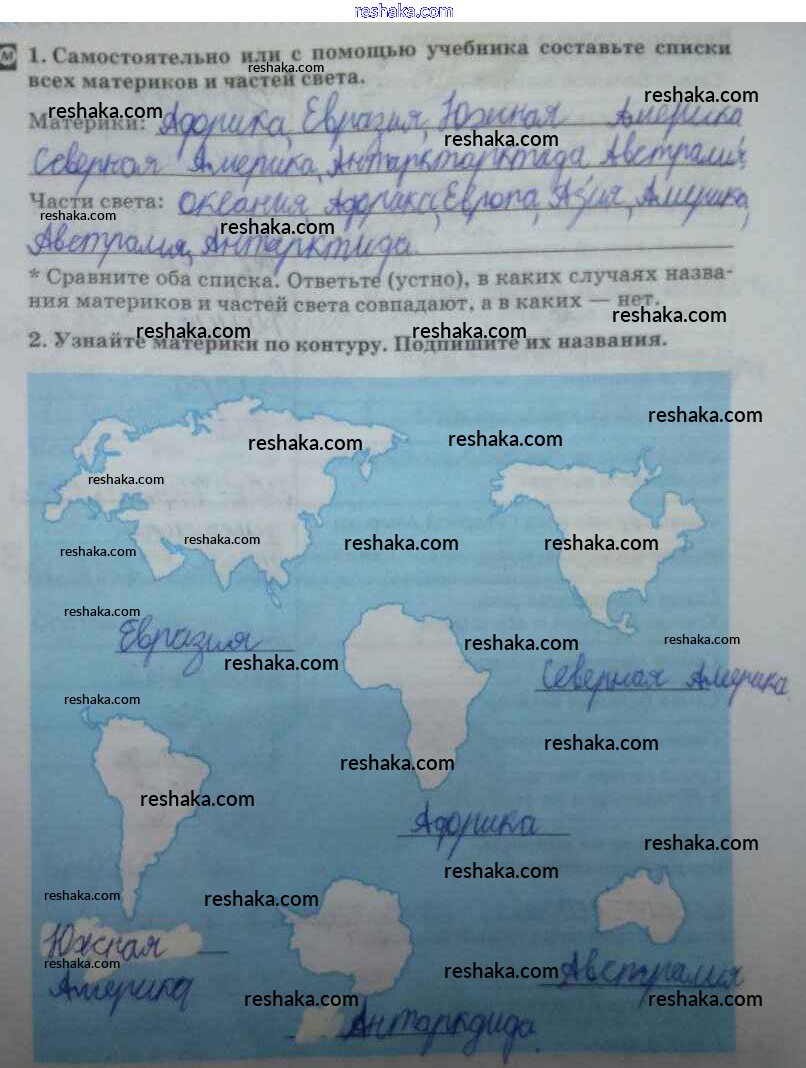 reshaka.com
1. Самостоятельно или с помощью учебника составьте списки
reshaka.com
всех материков и частей света.
reshaka.com
reshaka.com
Материки: Африка, Евразия, Южная Америка
reshaka.com
Северная Америка, Антарктарктида Австралия,
Части света: Океания, Африка, Европа, Азия, Америка,
reshaka.com
reshaka.com
Австралия, Антарктида.
* Сравните оба списка. Ответьте (устно), в каких случаях назва-
ния материков и частей света совпадают, а в каких — нет.
reshaka.com
reshaka.com
reshaka.com
2. Узнайте материки по контуру. Подпишите их названия.
reshaka.com
reshaka.com
reshaka.com
reshaka.com
reshaka.com
reshaka.com
reshaka.com
reshaka.com
reshaka.com
Евразия
reshaka.com
reshaka.com
reshaka.com
Северная Америка.
reshaka.com
reshaka.com
reshaka.com
reshaka.com
Африка
reshaka.com
reshaka.com
reshaka.com
reshaka.com
Южная
reshaka.com
Америка
reshaka.com
Австралия
reshaka.com
reshaka.com
Антаркдида.